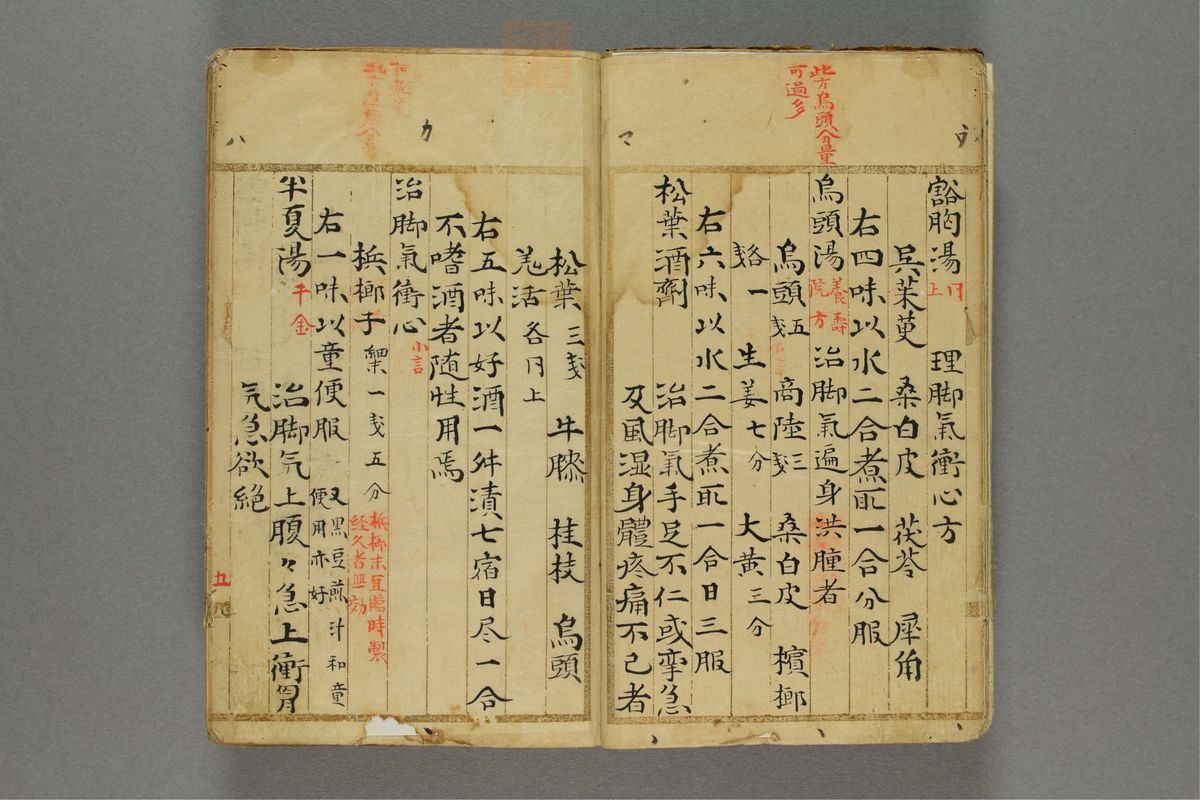 此方烏頭分量
可過多
豁胸湯 同上 理脚氣衝心方
呉茱萸 桑白皮 茯苓 犀角
右四味以水二合煮取一合分服
烏頭湯 養壽院方 治脚氣遍身洪腫者
烏頭五戔 商陸三戔 桑白皮 檳榔
各一戔 生姜七分 大黄三分
右六味以水二合煮取一合日三服
松葉酒劑 治脚氣手足不仁或挛急
及風湿身體疼痛不已者
松葉三戔 牛膝 桂枝 烏頭
羌活各同上
右五味以好酒一舛漬七宿日尽一合
不嗜酒者随性用焉
治脚氣衝心
梹榔子細末一戔五分 梹榔末宜臨時製
経久者無効
右一味以童便服 又黒豆煎汁和童
便用亦好
半夏湯 千金 治脚气上腹々急上衝胃
气急欲絶
五